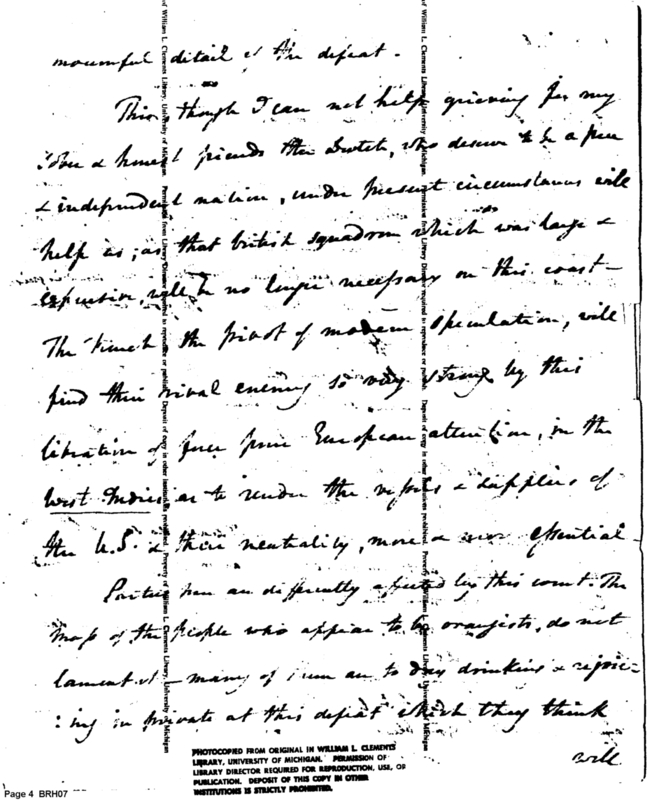 mournful detail of the defeat.
This though I can not help grieving for my
& honest friends the Dutch, who deserve to be a free
& independent nation, under present circumstances will
help us; as that british squadron which was large &
expensive, will be no longer necessary on this coast—
The french the pivot of modern speculation, will
find their rival enemy so very strong by this
libration of force from European attention, in the
West Indies as to render the vessels & supplies of
the U.S. & their neutrality, more & more essential—
Parties here are differently affected by this event. The
mass of the people who appear to be orangists, do not
lament it — many of them are to day drinking & rejoic-
:ing in private at this defeat which they think
will
of William L. Clements Library, University of Michigan. Permission from Library Director required to reproduce or publish. Deposit of copy in other institutions prohibited. Property of William L. Clements Library, University of Michigan
of William L. Clements Library, University of Michigan. Permission from Library Director required to reproduce or publish. Deposit of copy in other institutions prohibited. Property of William L. Clements Library, University of Michigan
PHOTOCOPIED FROM ORIGINAL IN WILLIAM L. CLEMENTS
LIBRARY, UNIVERSITY OF MICHIGAN. PERMISSION OF
LIBRARY DIRECTOR REQUIRED FOR REPRODUCTION, USE, OR
PUBLICATION. DEPOSIT OF THIS COPY IN OTHER
INSTITUTIONS IS STRICTLY PROHIBITED.
Page 4 BRH07